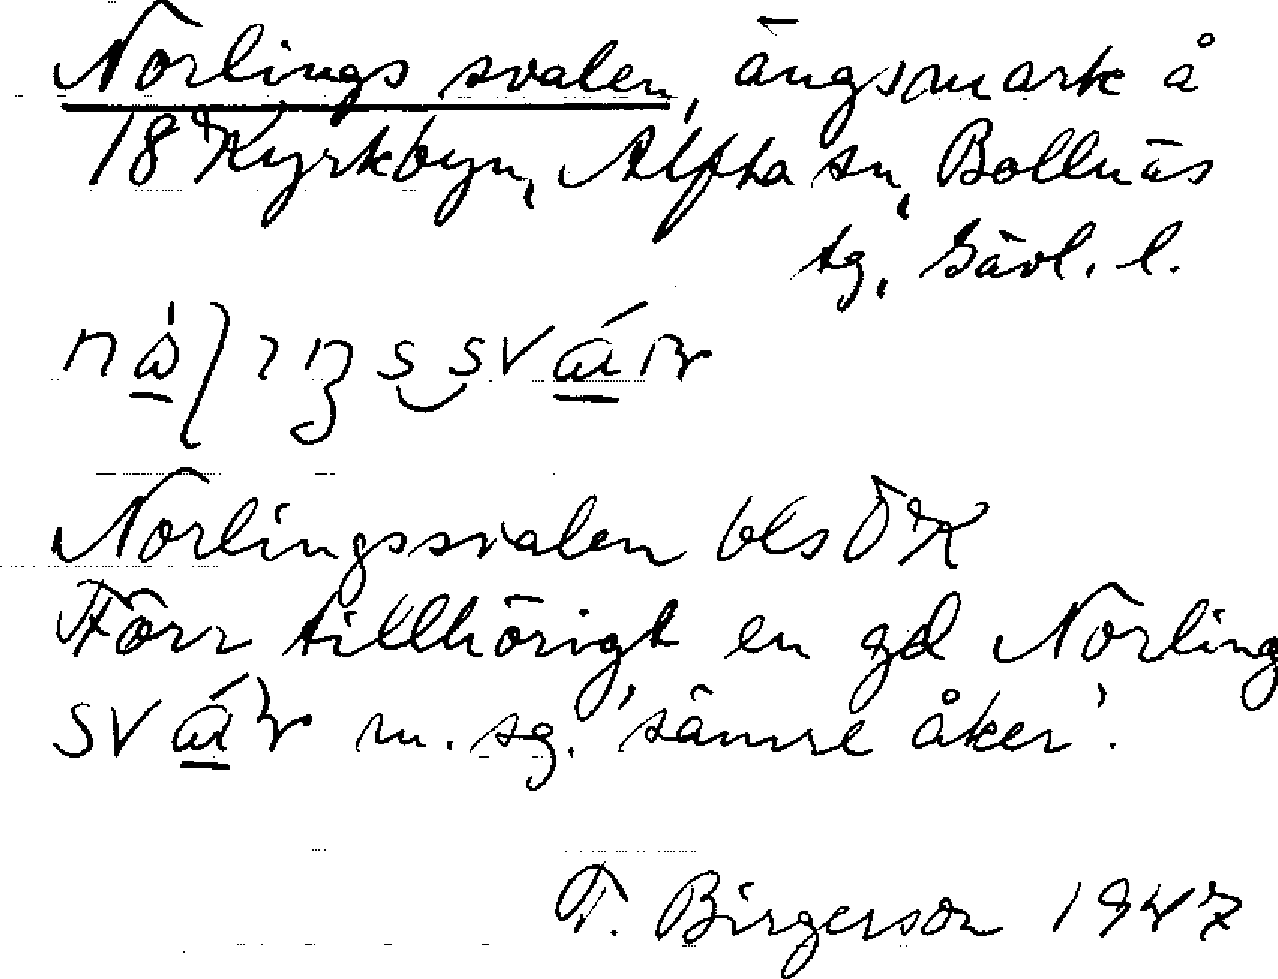 Norlings svalen, ängsmark å
18 Kyrkbyn, Alfta sn, Bollnäs
tg, Gävl. l.
Norlingssvalen bls ÖK
Förr tillhörigt en gd Norling
m. sg. 'sämre åker'.
T. Birgerson 1947